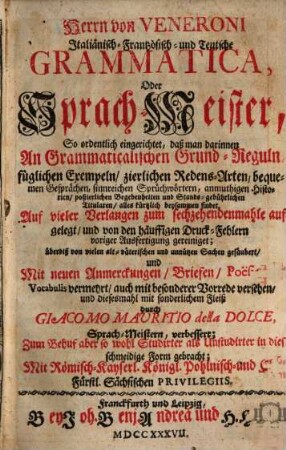 Herrn von VENERONI
Italiänisch-Frantzösisch-und Teutsche
GRAMMATICA,
Oder
Sprach-Meister,
So ordentlich eingerichtet, daß man darinnen
An Grammaticalischen Grund-Reguln
füglichen Exempeln/ zierlichen Redens-Arten/ beque-
men Gesprächen, sinnreichen Sprüchwörtern, anmuthigen Histo-
rien/ possierlichen Begebenheiten und Stands-gebührlichen
Titularen/ alles kürtzlich beysammen findet,
Auf vieler Verlangen zum sechzehendenmahle auf
gelegt/ und von den häuffigen Druck-Fehlern
voriger Ausfertigung gereiniget;
überdiß von vielen alt-väterischen und unnützen Sachen gesäubert/
und
Mit neuen Anmerckungen/ Briefen/ Poës
Vocabulis vermehrt/ auch mit besonderer Vorrede versehen/
und diesesmahl mit sonderlichem Fleiß
durch
GIACOMO MAURITIO della DOLCE,
Sprach-Meistern, verbessert;
Zum Behuf aber so wohl Studirter als Unstudirter in dies
schmeidige Form gebracht;
Mit Römisch-Kayserl. Königl. Pohlnisch-und C
Fürstl. Sächsischen PRIVILEGIIS.
Franckfurth und Leipzig,
Bey Joh. Benj. Andrea und H.
MDCCXXXVII.